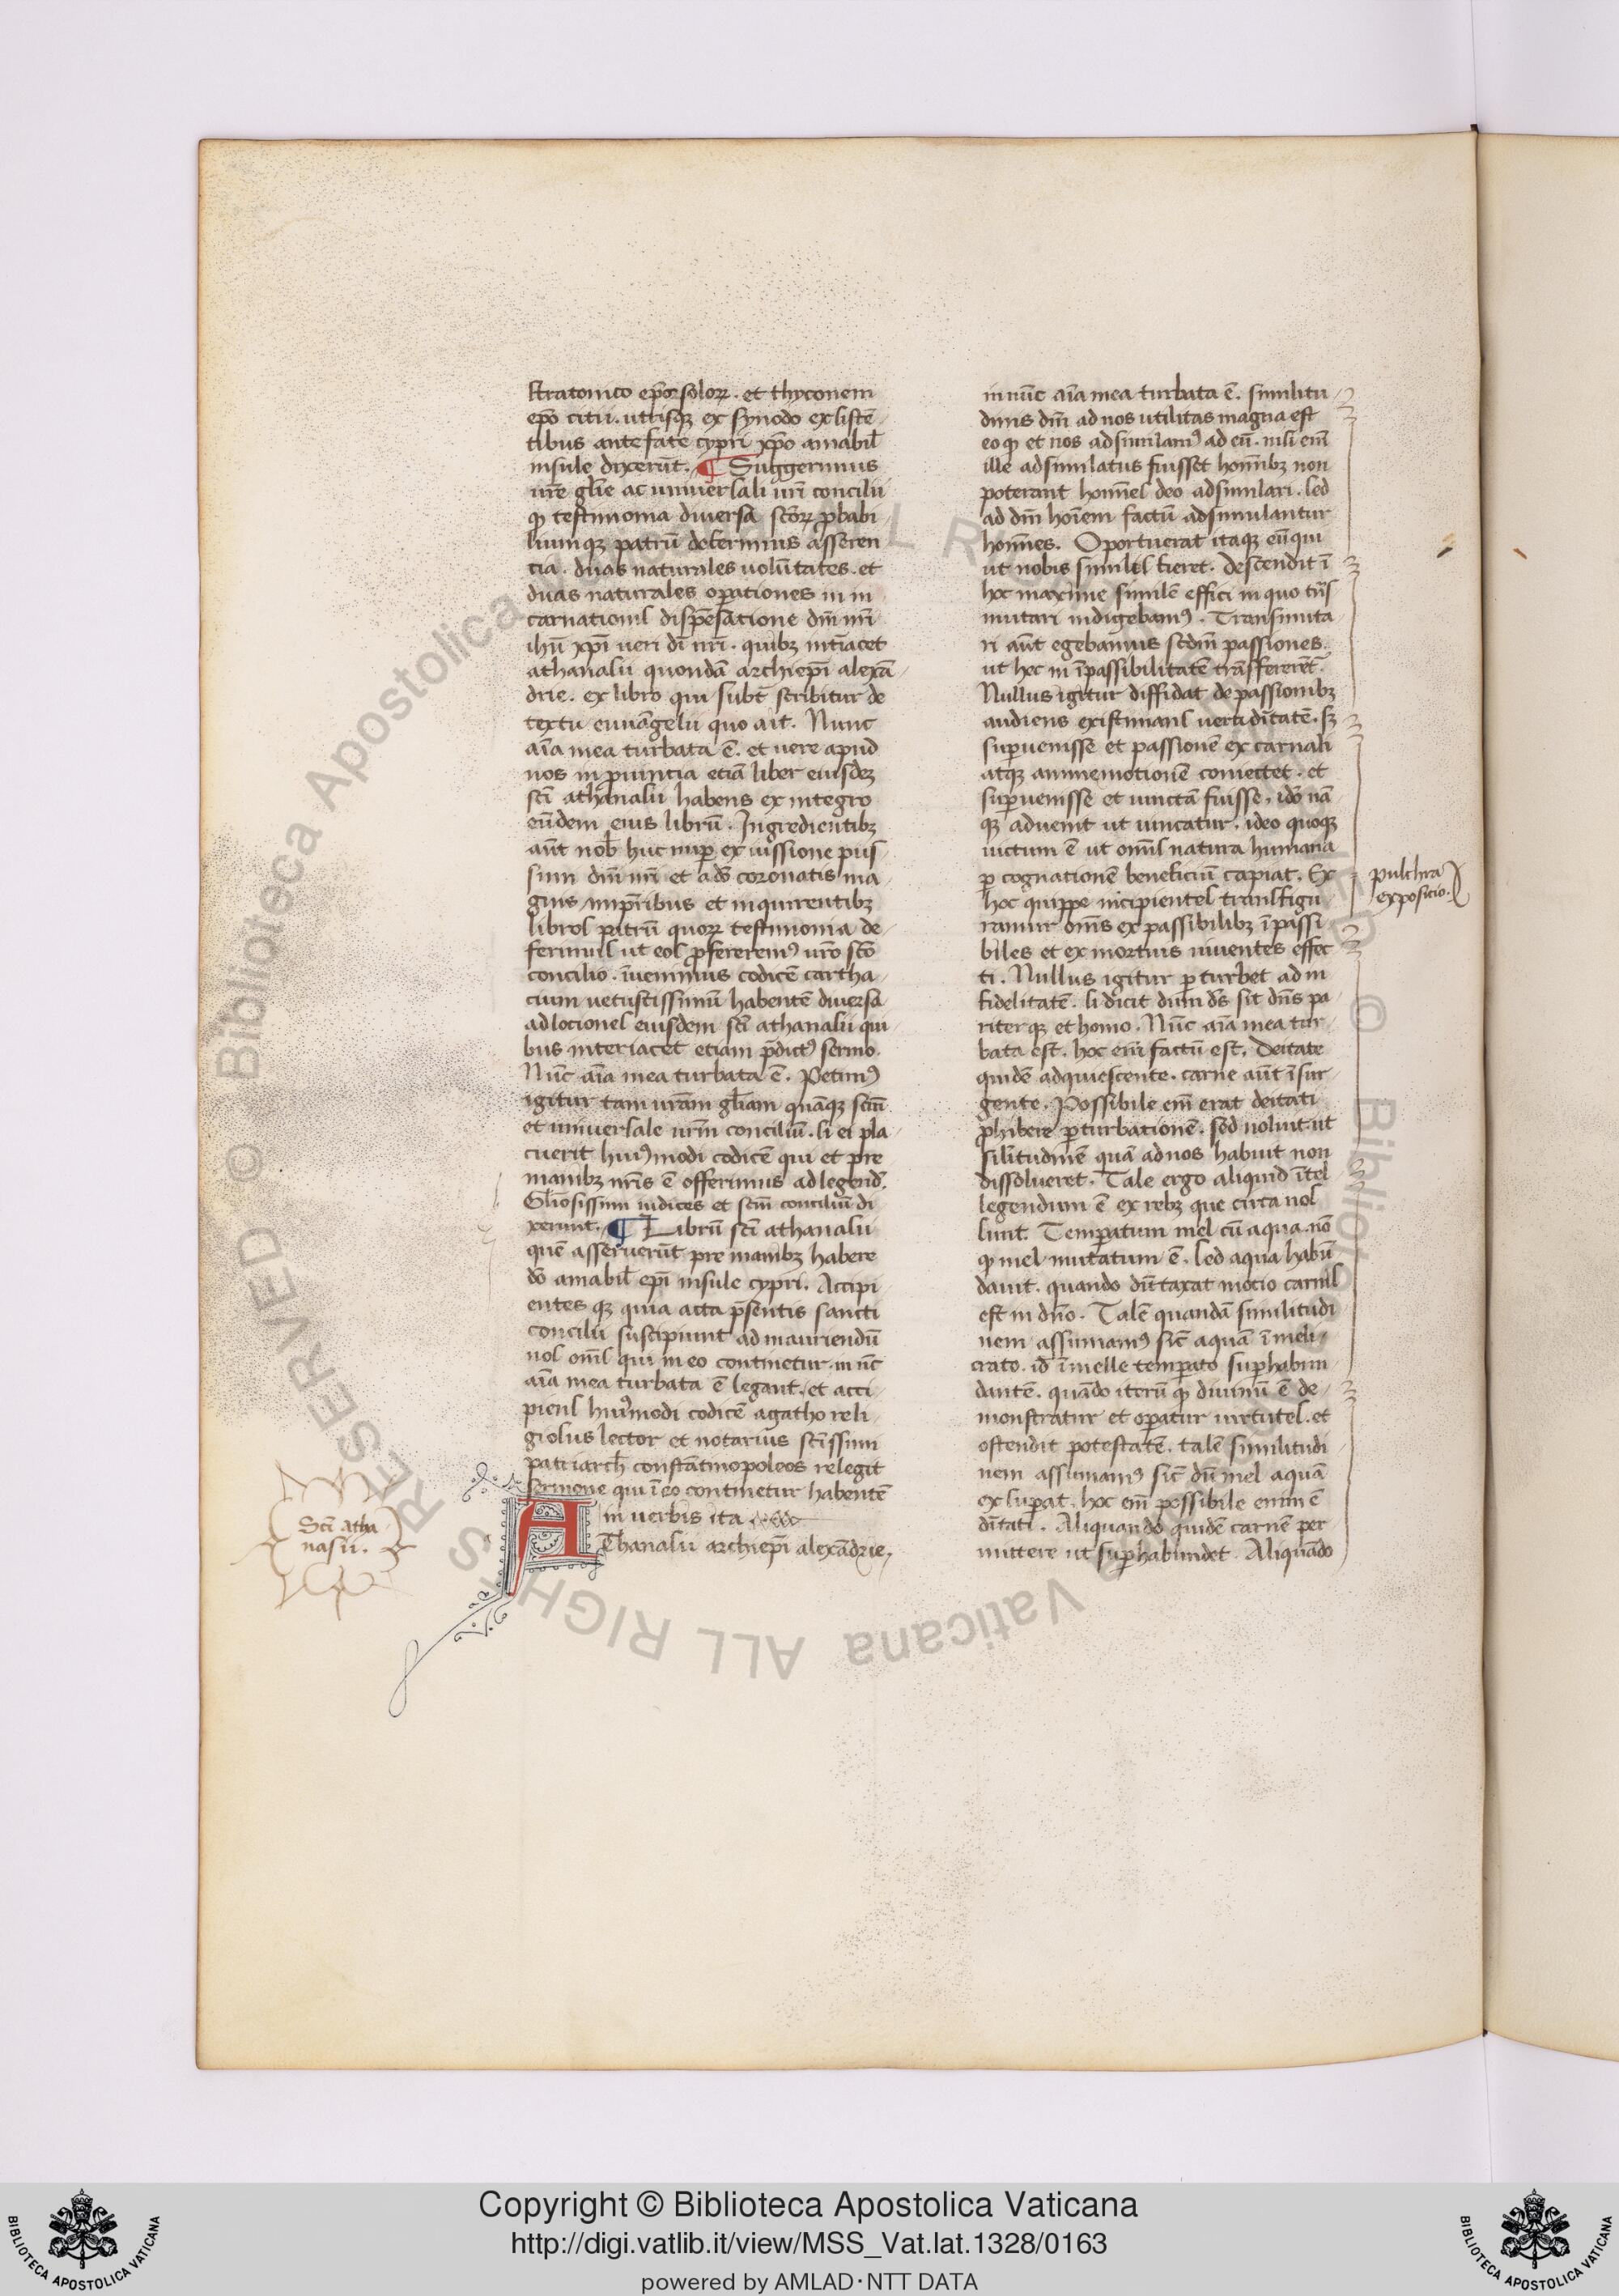 stratonico ep̄o solorꝝ. et thyconem
ep̄o citii. utrisqꝫ ex synodo existē
tibus antefate cypri xp̄o amabil̄
insule dixerūt. ¶ Suggerimus
ur̄e gl̄ie ac universali ur̄i concilii
ꝙ testimonia diversa sc̄orꝝ ꝓbabi
liumqꝫ patrū deferimus asseren
cia. duas naturales uolūtates. et
duas naturales oꝑationes in in
carnationis dispēsatione dn̄i nr̄i
ihū xp̄i ueri di nr̄i. quibꝫ int̄iacet
athanasii quondā archiep̄i alexā
drie. ex libro qui subt̄ scribitur de
textu euuāgelii quo ait. Nunc
aīa mea turbata ē. et uere apud
nos in ꝓuincia etiā liber eiusdeꝫ
sc̄i athanasii habens ex integro
eūdem eius librū. Ingredientibꝫ
aūt nob̄ huc nuꝑ ex iussione pus
sim dn̄i nr̄i et a dō coronatis ma
gnis imp̄ribus et inquirentibꝫ
libros patrū quorꝝ testimonia de
ferimus ut eos ꝓfererem⁹ ur̄o sc̄o
concilio. īuenimus codicē cartha
cium uetustissimū habentē diuersa
adlociones eiusdem sc̄i athanasii qui
bus interiacet etiam p̄dict⁹ sermo.
Nūc aīa mea turbata ē. Petim⁹
igitur tam ur̄am gl̄iam quāqꝫ sc̄m̄
et uniuersale ur̄m concilium. si ei pla
cuerit hui⁹modi codicē qui et pre
manibꝫ nr̄is ē offerimus ad legend̄.
Gl̄iosissimi iudices et sc̄m concilium di
xerunt. ¶ Librū sc̄i athanasii
quē asseruerūt pre manibꝫ habere
dō amabil̄ ep̄i insule cypri. Accipi
entes qꝫ quia acta p̄sentis sancti
concilii suscipiunt ad mauriendū
nos om̄s qui in eo continetur. in nc̄
aīa mea turbata ē legant. et acci
piens hui⁹modi codicē agatho reli
giosus lector et notarius sc̄issimi
patriarch̄ constātinopoleos relegit
sermone qui ī eo continetur habentē
in uerbis ita
Athanasii archiep̄i alexādrie.
Sc̄i atha
nasii.
in nūc aīa mea turbata ē. similitu
dinis dn̄i ad nos utilitas magna est
eo ꝙ et nos adsimilam⁹ ad eū. nisi em̄
ille adsimilatus fuisset homībꝫ non
poterant homīes deo adsimilari. sed
ad dn̄i hoīem factū adsimulantur
homīes. Oportuerat itaqꝫ eū qui
ut nobis similis fieret. descendit ī
hoc maxime similē effici in quo tn̄s
mutari indigebam⁹. Transmuta
ri aūt egebamus sc̄dm̄ passiones.
ut hec in īpassibilitatē trāsfererēt.
Nullus igitur diffidat de passionibꝫ
audiens existimans uerti dītatē. sꝫ
suꝑuenisse et passionē ex carnali
atqꝫ anime motionē coniectet. et
suꝑuenisse et uinctā fuisse. idō nā
qꝫ aduenit ut uincatur. ideo quoqꝫ
uictum ē ut om̄is natura humana
ꝑ cognationē beneficiū capiat. Ex
hoc quippe incipientes transfigu
ramur om̄s ex passibilibꝫ īpassi
biles et ex mortuis uiuentes effec
ti. Nullus igitur ꝑturbet ad in
fidelitatē. si dicit dum dō sit dn̄s pa
riterqꝫ et homo. Nūc aīa mea tur
bata est. hoc em̄ factū est. deitate
quidē adquiescente. carne aūt īsur
gente. Possibile em̄ erat deitati
ꝓhibere ꝑturbationē. sed noluit ut
similitudinē quā ad nos habuit non
dissolueret. Tale ergo aliquid ītel
legendum ē ex rebꝫ que circa nos
sunt. Temꝑatum mel cū aqua. nō
ꝙ mel mutatum ē. sed aqua habū
dauit. quando dūtaxat mocio carnis
est in dn̄o. Talē quandā similitudi
nem assumam⁹ sic̄ aquā ī meli
crato. id ī melle temꝑato suꝑhabun
dantē. quādo iterū ꝙ diuinū ē de
monstratur et oꝑatur uirtutes. et
ostendit potestatē. talē similitudi
nem assumam⁹ sic̄ dū mel aquā
exsuꝑat. hoc em̄ possibile enim ē
dītati. Aliquando quidē carnē per
mittere ut suꝑhabundet. Aliquādo
pulchra
expositio.
Copyright © Biblioteca Apostolica Vaticana
http://digi.vatlib.it/view/MSS_Vat.lat.1328/0163
powered by AMLAD·NTT DATA
BIBLIOTECA APOSTOLICA VATICANA
BIBLIOTECA APOSTOLICA VATICANA
© Biblioteca Apostolica Vaticana ALL RIGHTS RESERVED